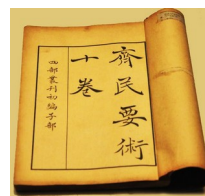 齊民要術
十卷
四部叢刊初編子部